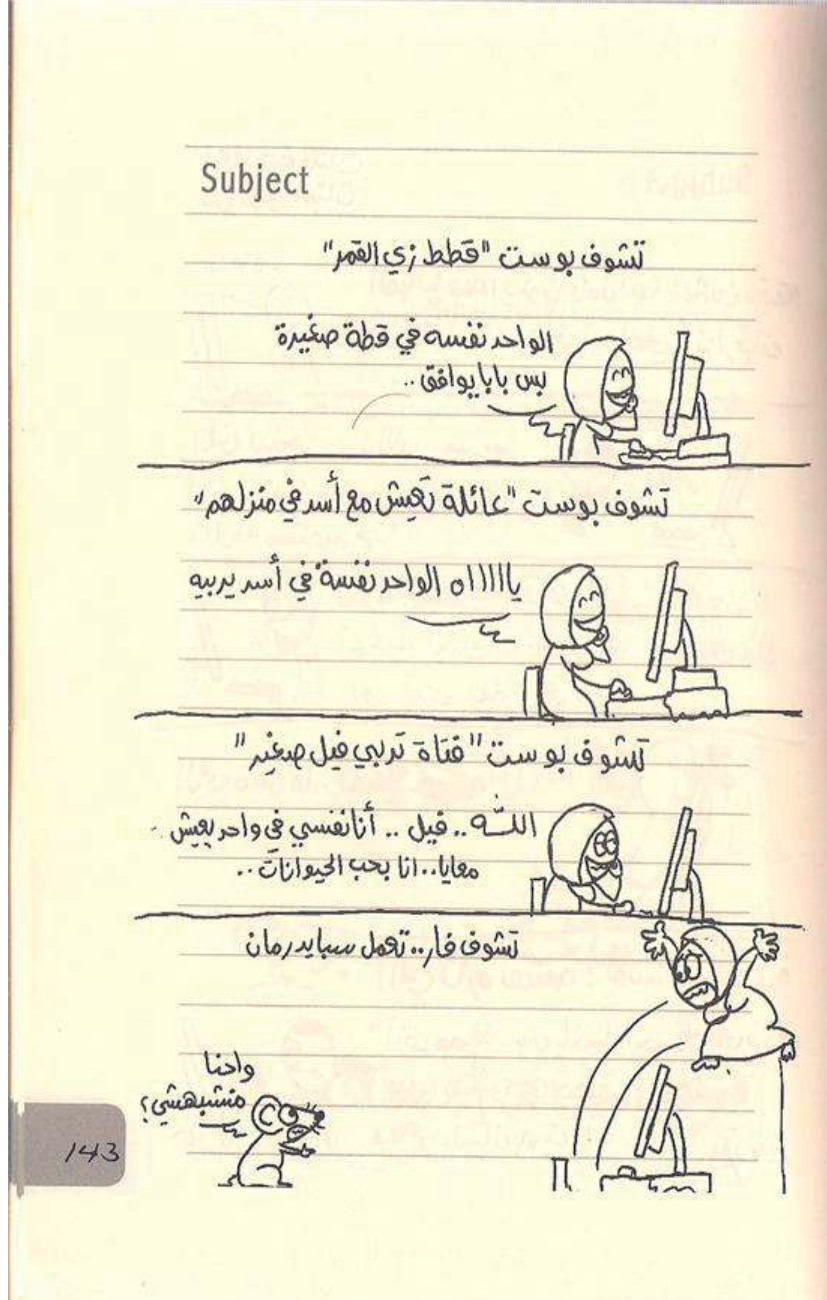 Subject
تشوف بوست "قطط زي القمر"
الواحد نفسه في قطة صغيرة
بس بابا يوافق..
تشوف بوست "عائلة تعيش مع أسد في منزلهم"
يااااااه الواحد نفسة في أسد يربيه
تشوف بوست "فتاة تربي فيل صغير"
اللـــه.. فيل .. أنا نفسي في واحد يعيش
معايا.. انا بحب الحيوانات..
تشوف فار.. تعمل سبايدرمان
واحنا
منشبهشي؟
143